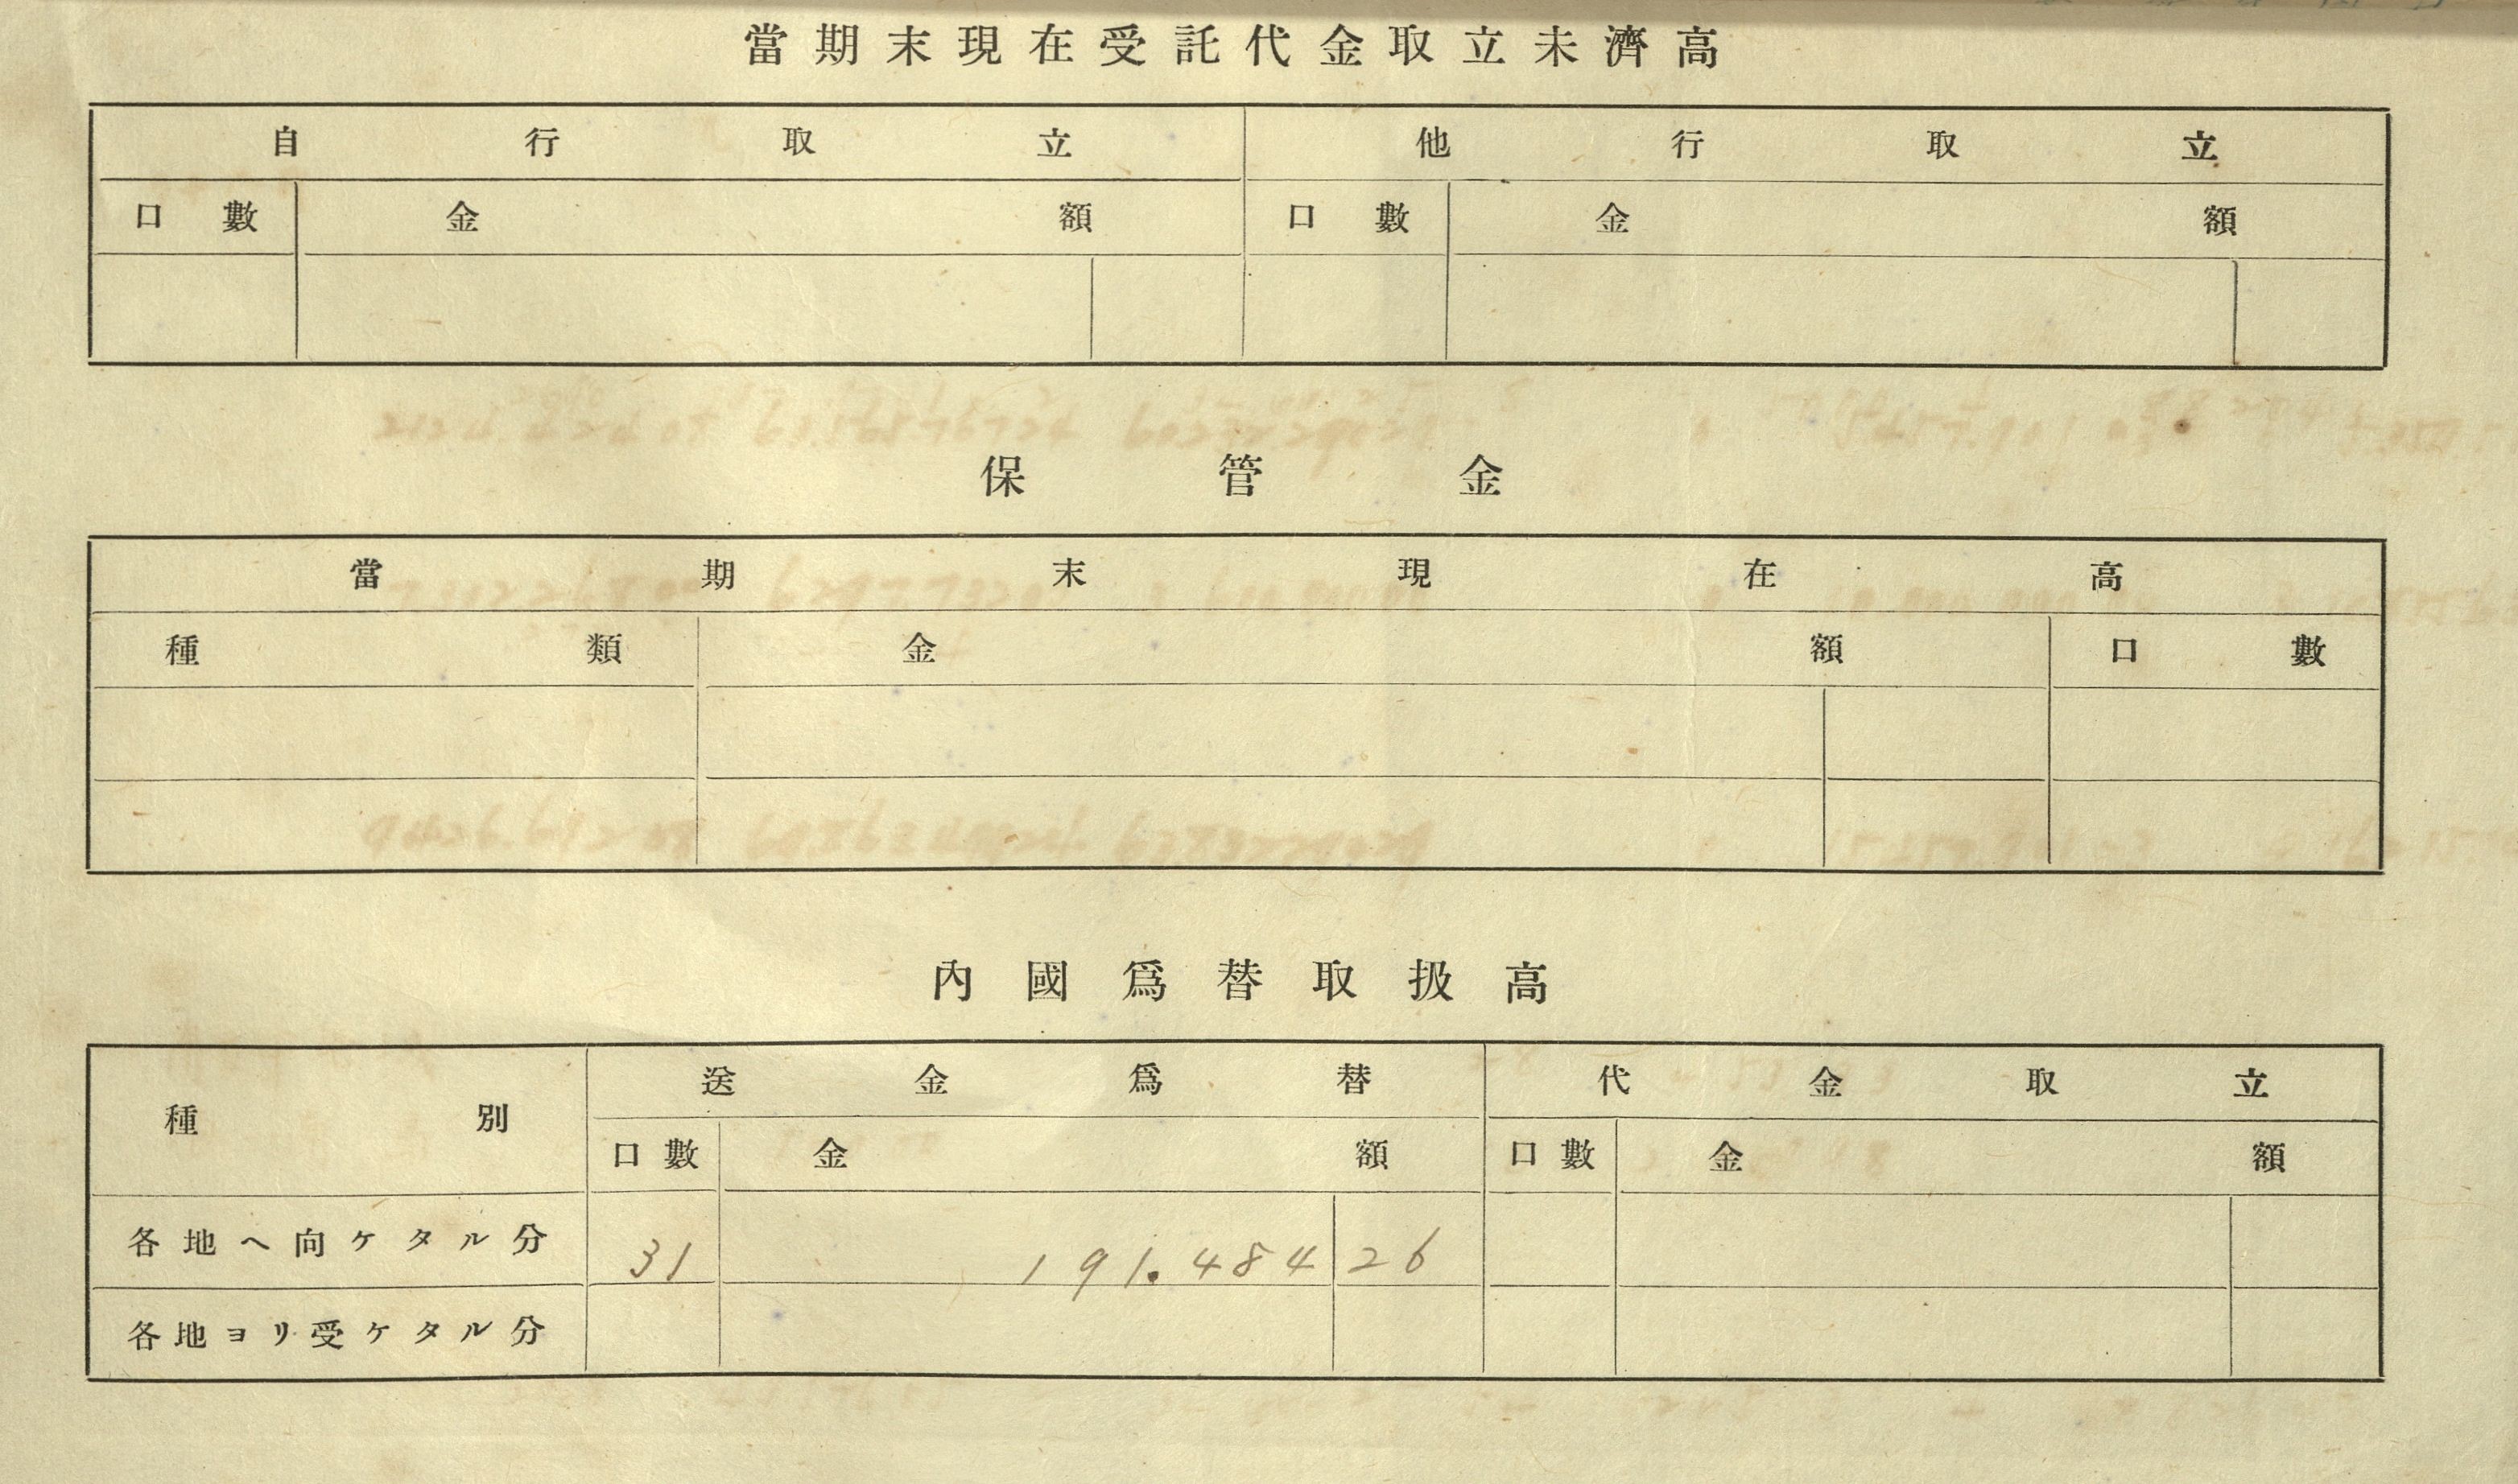 當期末現在受託代金取立未濟高
自行取立 他行取立
口數 金額 口數 金額
保管金
當期末現在高
種類 金額 口數
內國爲替取扱高
種別 送金爲替 代金取立
口數 金額 口數 金額
各地へ向ケタル分 31 191.484 26
各地ヨリ受ケタル分